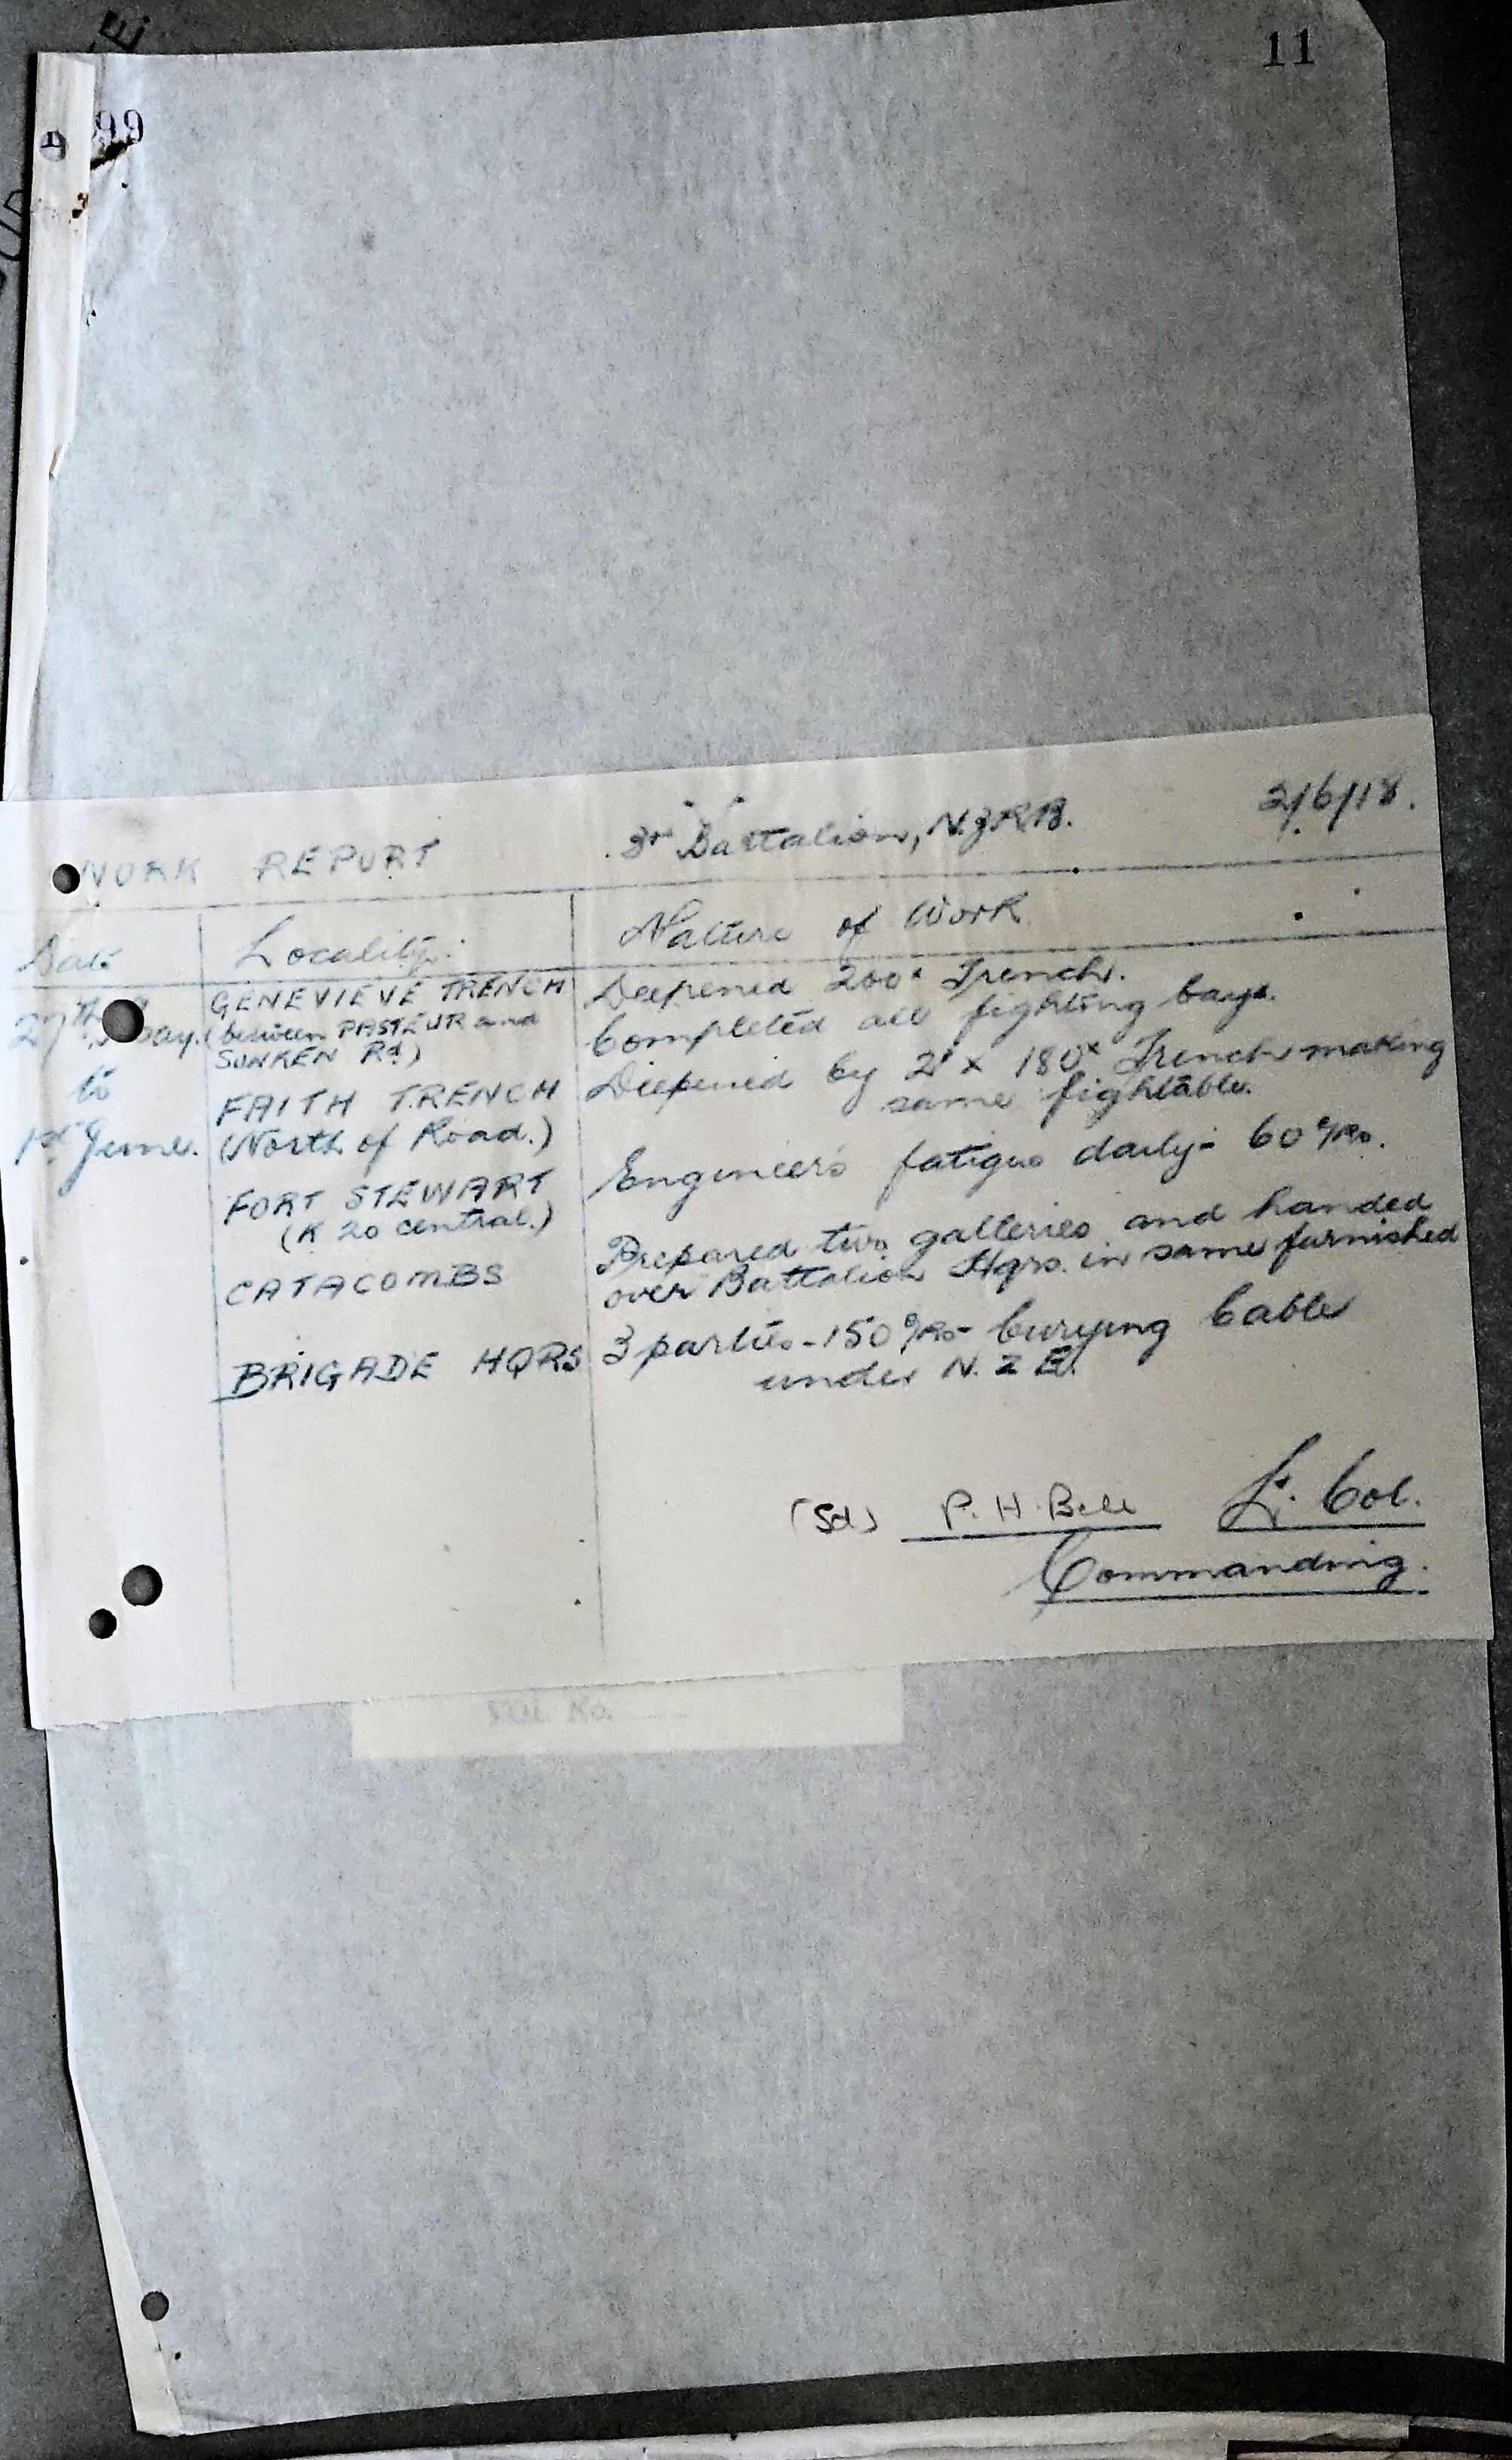 11
99
WORK REPORT 3rd Battalion, N.Z.R.B. 2/6/18.
Date Locality. Nature of Work
27th May. GENEVIEVE TRENCH Deepened 200x Trench.
(between PASTEUR and Completed all fighting bays.
SUNKEN Rd)
to FAITH TRENCH Deepened by 2' x 180x Trench making
1st June. (North of Road.) same fightable.
FORT STEWART Engineers fatigue daily - 60 o/Rs.
(K 20 central.)
CATACOMBS Prepared two galleries and handed
over Battalion Hqrs. in same furnished
BRIGADE HQRS 3 parties - 150 o/Rs - burying Cable
under N.Z.E.
(Sd) P. H. Bell Lt. Col.
Commanding.
No.